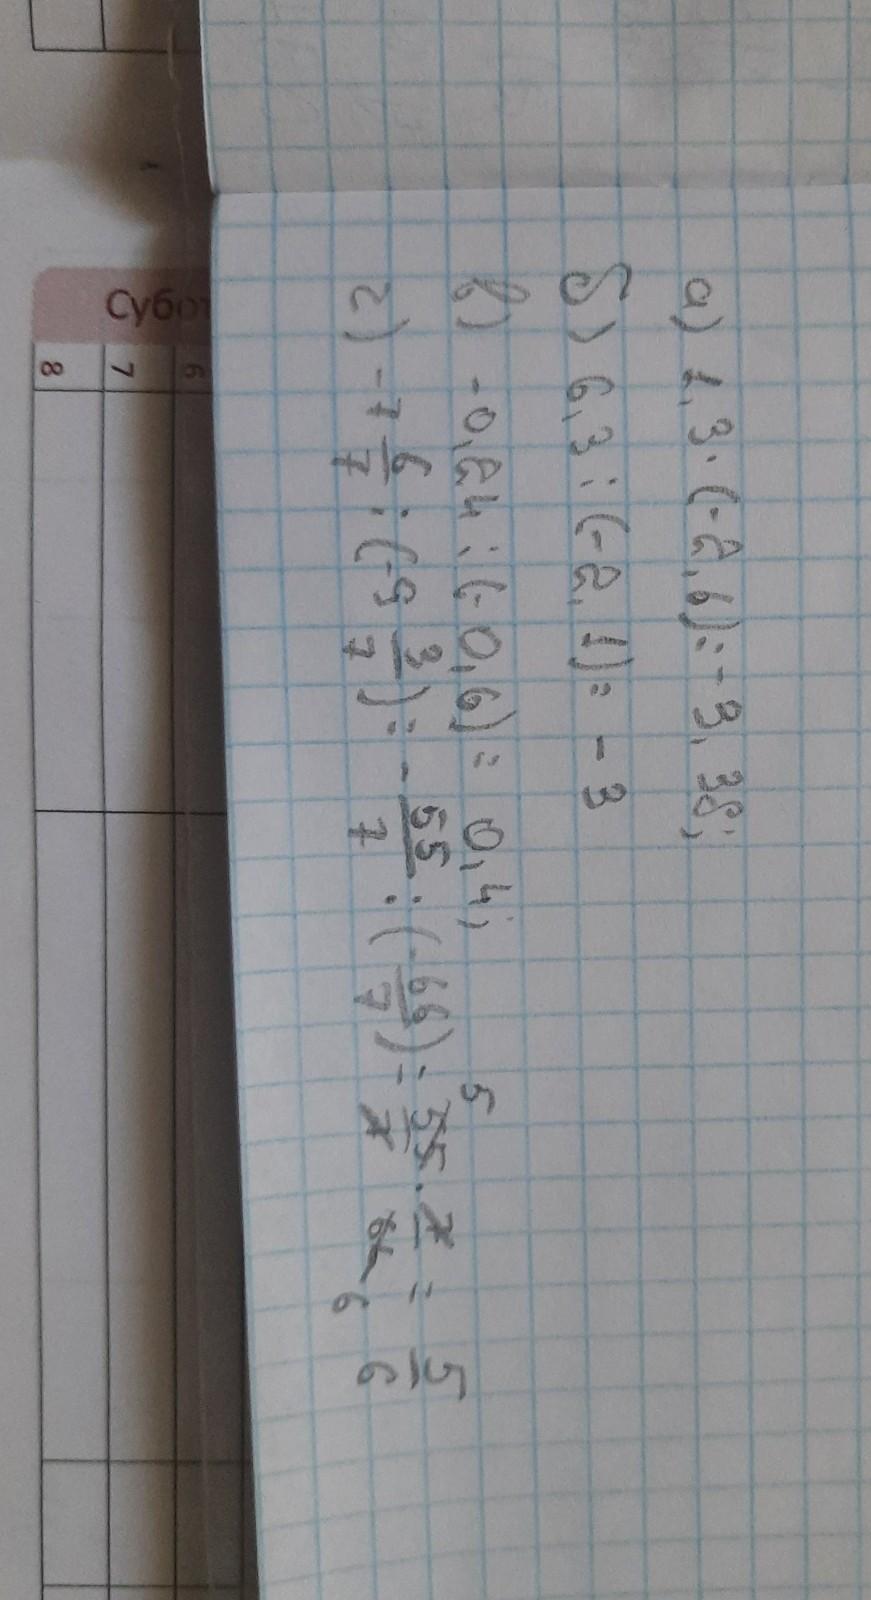 а) 1,3·(-2,6)=-3,38;
б) 6,3:(-2,1)=-3
в) -0,24:(-0,6)=0,4;
г) -7 6/7 : (-9 3/7) = -55/7 : (-66/7) = 55/7 · 7/66 = 5/6
5
6
Субот
6
7
8